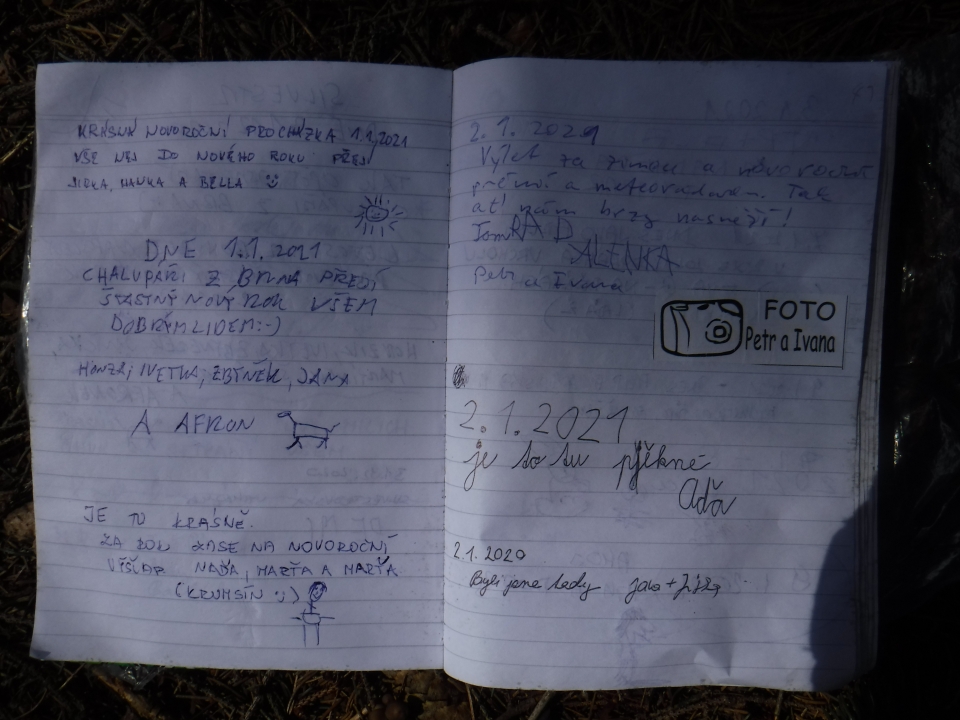 KRÁSNÁ NOVOROČNÍ PROCHÁZKA 1.1.2021
VŠE NEJ DO NOVÉHO ROKU PŘEJÍ
HANKA A BELLA
DNE 1.1.2021
CHALUPÁŘI Z BRNA PŘEJÍ
ŠŤASTNÝ NOVÝ ROK VŠEM
DOBRÝM LIDEM :-)
HONZA, IVETKA, ZBYNĚK, JANA
A AFRON
JE TU KRÁSNĚ.
ZA ROK ZASE NA NOVOROČNÍ
VÝŠLAP NAĎA, MARŤA A MARŤA
(KRUMSÍN :))
2.1.2021
Výlet za zimou a novoroční
a Tak
ať nám brzy nasněží!
Tom RAD
ALENKA
Petr a Ivana
FOTO
Petr a Ivana
2.1.2021
je to tu pěkné
Áďa
2.1.2020
Byli jsme tady